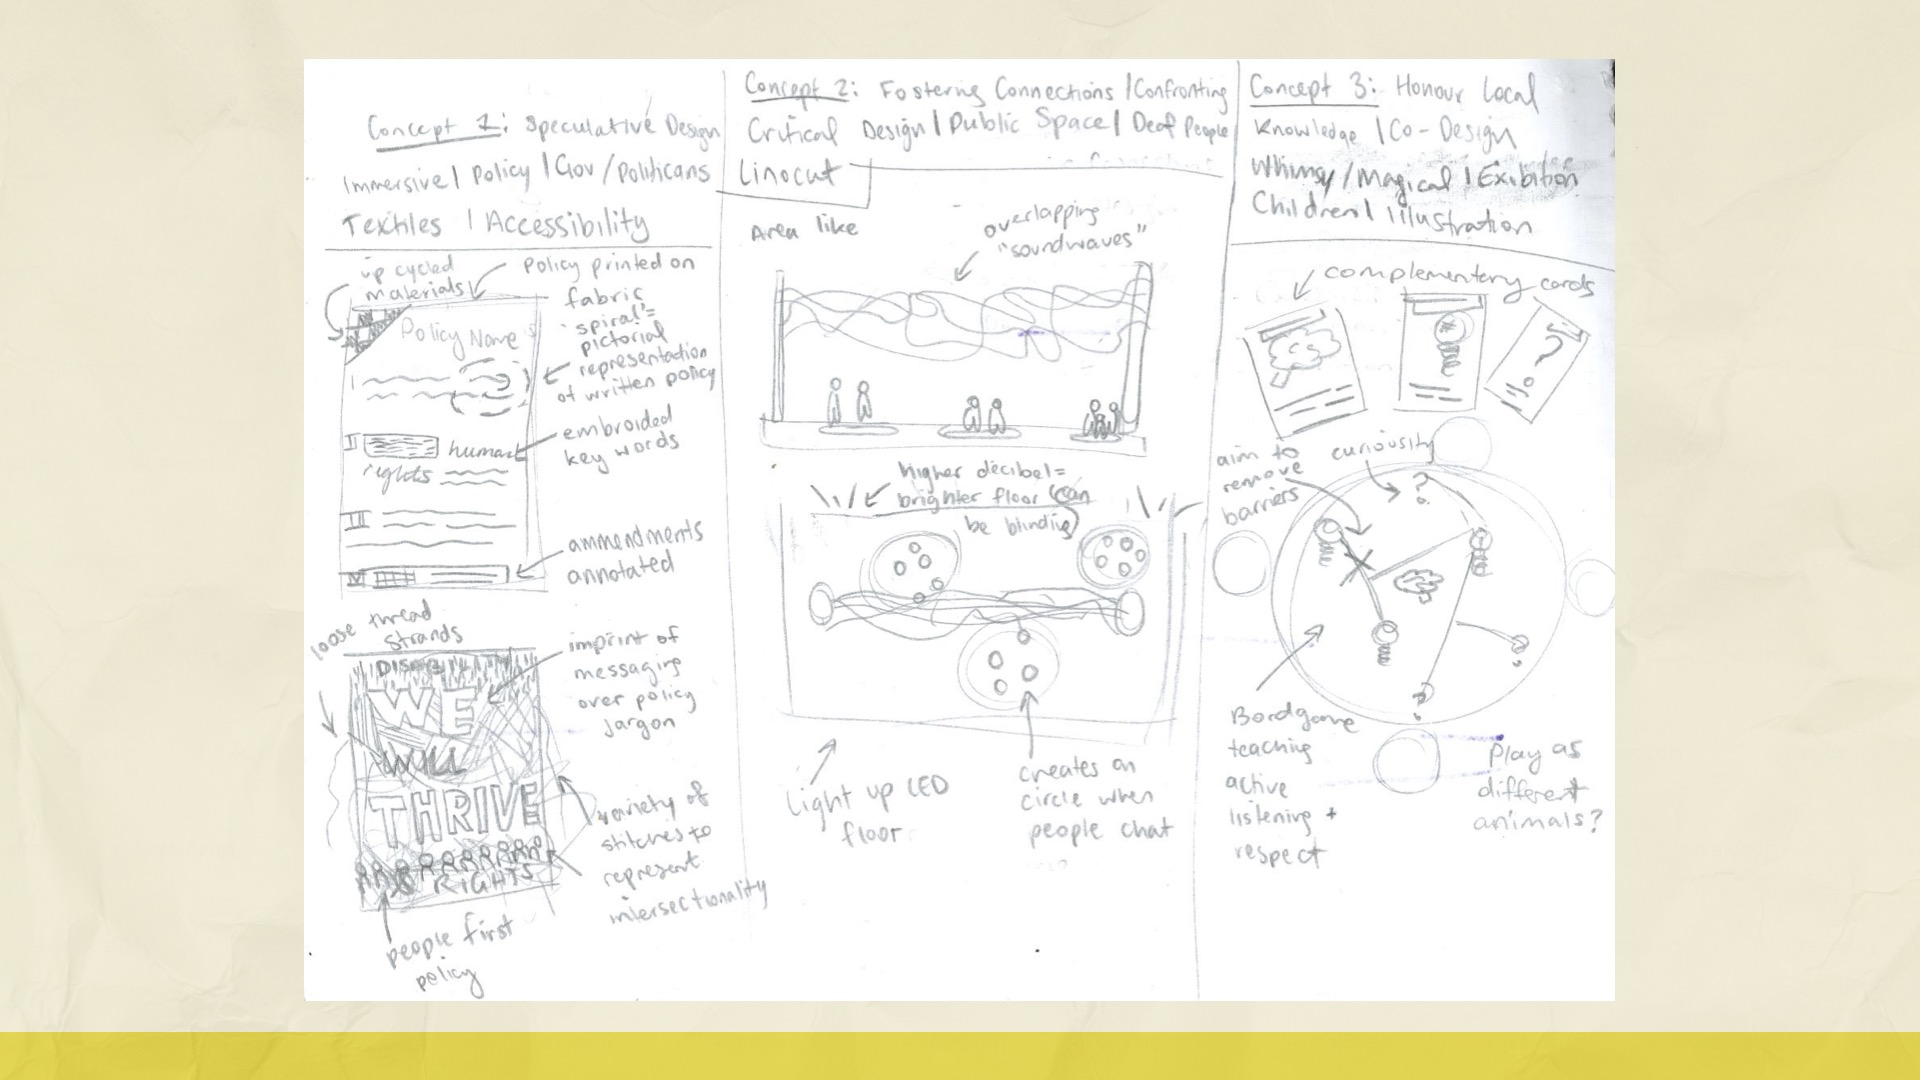 Concept 1: Speculative Design
Immersive | Policy | Gov / Politicans
Textiles | Accessibility
up cycled
materials
Policy printed on
fabric
"spiral"=
pictorial
representation
of written policy
Policy Name
I
embroided
key words
II
human
rights
III
ammendments
annotated
IV
loose thread
strands
imprint of
messaging
over policy
jargon
WE
WILL
THRIVE
RIGHTS
variety of
stitches to
represent
intersectionality
people first
policy
Concept 2: Fostering Connections | Confronting
Critical Design | Public Space | Deaf People
Linocut
Area like
overlapping
"soundwaves"
higher decibel=
brighter floor (can
be blinding)
Light up LED
floor
creates an
circle when
people chat
Concept 3: Honour Local
Knowledge | Co-Design
Whimsy / Magical | Exibition
Children | Illustration
complementery cards
?
aim to
remove
barriers
curiousity
?
Bordgame
teaching
active
listening +
respect
Play as
different
animals?